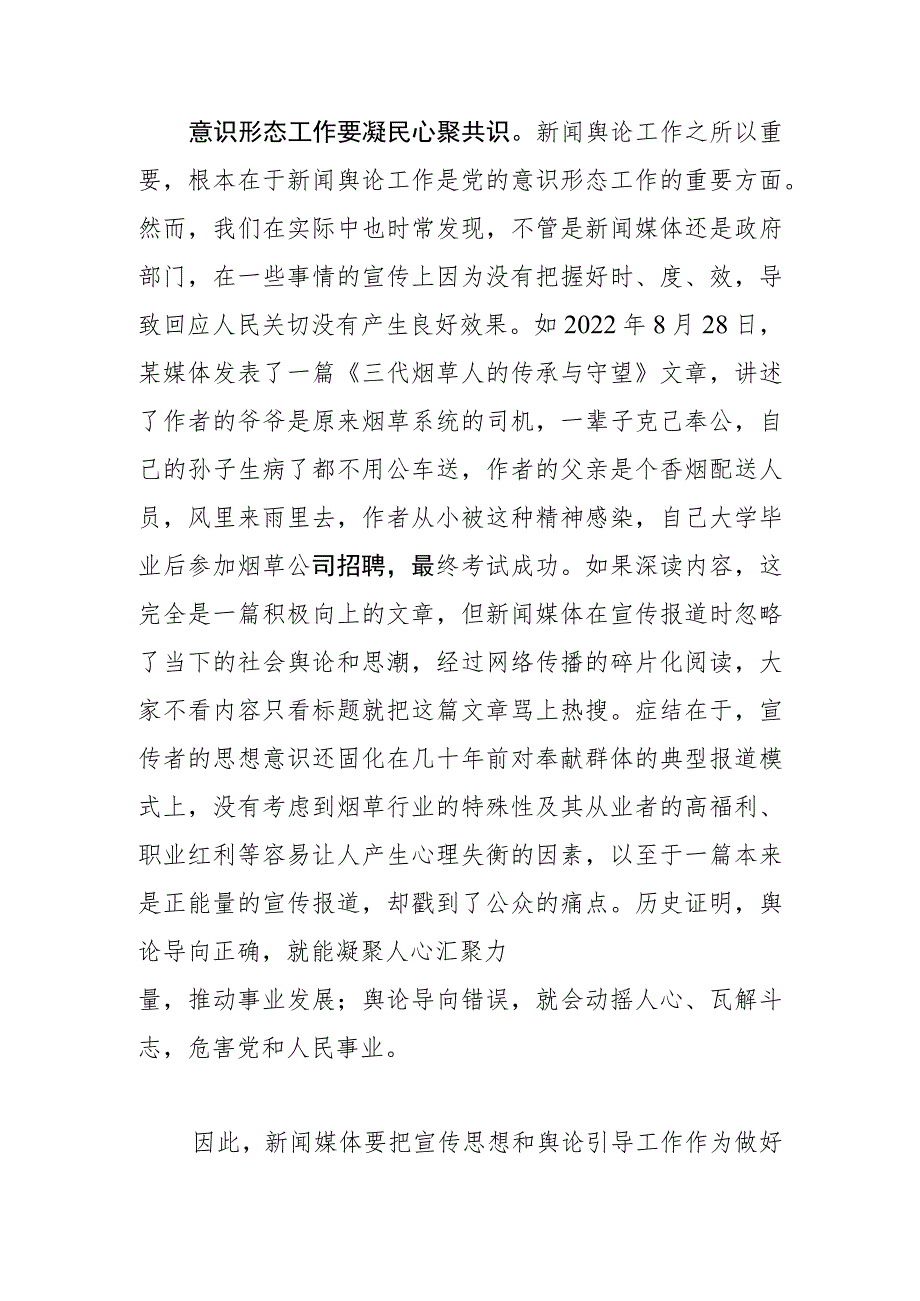 意识形态工作要凝民心聚共识。新闻舆论工作之所以重
要，根本在于新闻舆论工作是党的意识形态工作的重要方面。
然而，我们在实际中也时常发现，不管是新闻媒体还是政府
部门，在一些事情的宣传上因为没有把握好时、度、效，导
致回应人民关切没有产生良好效果。如 2022 年 8 月 28 日，
某媒体发表了一篇《三代烟草人的传承与守望》文章，讲述
了作者的爷爷是原来烟草系统的司机，一辈子克己奉公，自
己的孙子生病了都不用公车送，作者的父亲是个香烟配送人
员，风里来雨里去，作者从小被这种精神感染，自己大学毕
业后参加烟草公司招聘，最终考试成功。如果深读内容，这
完全是一篇积极向上的文章，但新闻媒体在宣传报道时忽略
了当下的社会舆论和思潮，经过网络传播的碎片化阅读，大
家不看内容只看标题就把这篇文章骂上热搜。症结在于，宣
传者的思想意识还固化在几十年前对奉献群体的典型报道模
式上，没有考虑到烟草行业的特殊性及其从业者的高福利、
职业红利等容易让人产生心理失衡的因素，以至于一篇本来
是正能量的宣传报道，却戳到了公众的痛点。历史证明，舆
论导向正确，就能凝聚人心汇聚力
量，推动事业发展；舆论导向错误，就会动摇人心、瓦解斗
志，危害党和人民事业。
因此，新闻媒体要把宣传思想和舆论引导工作作为做好